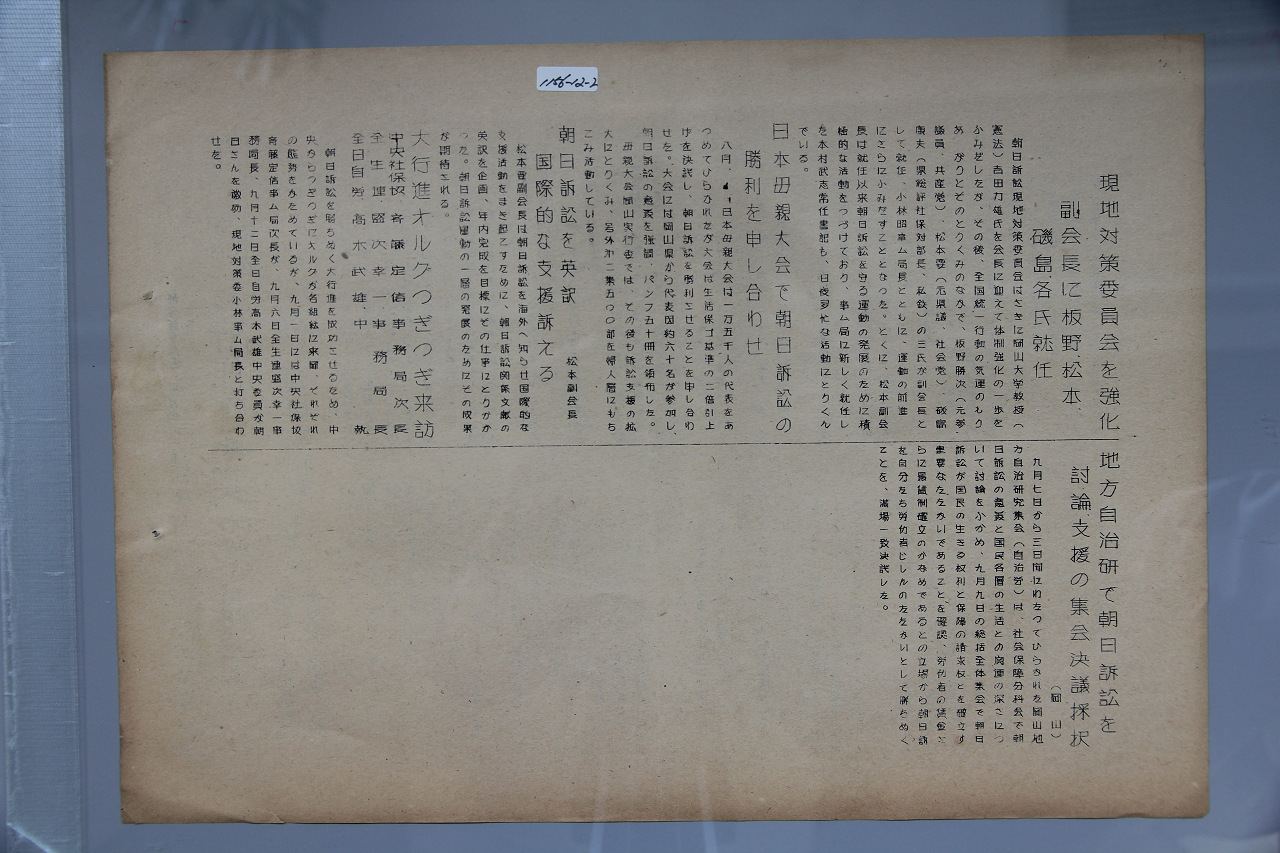 1156-12-2
現地対策委員会を強化
副会長に板野、松本、
磯島各氏就任
朝日訴訟現地対策委員会はさきに岡山大学教授（
憲法）吉田力雄氏を会長に迎えて体制強化の一歩を
ふみだしたが、その後、全国統一行動の気運のもり
あがりとそのとりくみのなかで、板野勝次（元参
議員、共産党）、松本要（元県議、社会党）、磯島
（県総評社保対部長、私鉄）の三氏が副会長と
して就任、小林昭事ム局長とともに、運動の前進
にさらにふみだすこととなった。とくに、松本副会
長は就任以来朝日訴訟を守る運動の発展のために積
極的な活動をつづけており、事ム局に新しく就任し
た木村武志常任書記も、日夜多忙な活動にとりくん
でいる。
日本母親大会で朝日訴訟の
勝利を申し合わせ
八月、日本母親大会は一万五千人の代表をあ
つめてひらかれたが大会は生活保ゴ基準の二倍引上
げを決議し、朝日訴訟を勝利させることを申し合わ
せた。大会には岡山県から代表団約六十名が参加し、
朝日訴訟の意義を強調、パンフ五十冊を領布した。
母親大会岡山実行委では、その後も訴訟支援の拡
大にとりくみ、号外才二集五〇〇部を婦人層にもち
こみ活動している。
朝日訴訟を英訳
国際的な支援訴える
松本副会長
松本要副会長は朝日訴訟を海外へ知らせ国際的な
支援活動をまき起こすために、朝日訴訟関係文献の
英訳を企画、年内完成を目標にその仕事にとりかか
った。朝日訴訟運動の一層の発展のためにその成果
が期待される。
大行進オルグつぎつぎ来訪
中央社保協 斉藤定信事務局次長
全生連・盛次幸一事務局長
全日自労・高木武雄・中執
朝日訴訟を勝ちぬく大行進を成功させるため、中
央からつぎつぎにオルグが各組織に来岡、それぞれ
の態勢をかためているが、九月一日には中央社保協
斉藤定信事ム局次長が、九月六日全生連盛次幸一事
務局長、九月十二日全日自労高木武雄中央委員が朝
日さんを激励、現地対策委小林事ム局長と打ち合わ
せた。
地方自治研で朝日訴訟を
討論、支援の集会決議採択
（岡山）
九月七日から三日間にわたってひらかれた岡山地
方自治研究集会（自治労）は、社会保障分科会で朝
日訴訟の意義と国民各層の生活との関連の深さにつ
いて討論をふかめ、九月九日の総括全体集会で朝日
訴訟が国民の生きる权利と保障の請求权とを確立す
る重要なたたかいであることを確認、労仂者の賃金と
らに最賃制確立のかなめであるとの立場から朝日訴
訟を自分たち労仂者じしんのたたかいとして勝ちぬく
ことを、満場一致決議した。